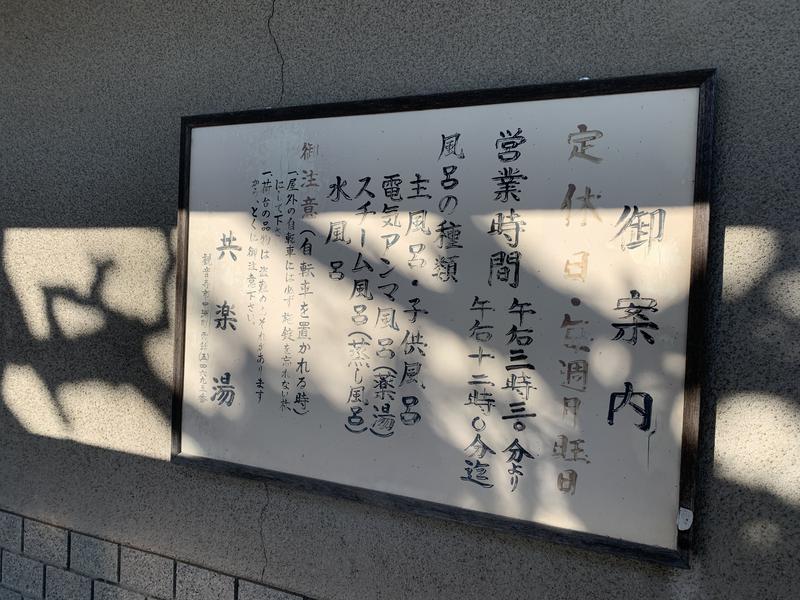 御案内
定休日・毎週月曜日
営業時間
午右三時三〇分より
午右十二時〇分迄
風呂の種類
主風呂・子供風呂
電気アンマ風呂(薬湯)
スチーム風呂(蒸し風呂)
水風呂
御注意(自転車を置かれる時)
一屋外の自転車には必ず施錠を忘れない様
にして下さい
一荷台の品物は盗難のおそれがあります
から、とくに御注意下さい。
共楽湯